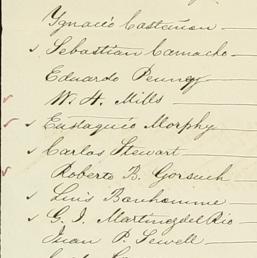 Ygnacio Castañon
Sebastian Camacho
Eduardo Penney
W. H. Mills
Eustaquio Morphy
Carlos Stewart
Roberto B. Gorsuch
Luis Bonhomme
G. I. Martinez del Rio
Juan P. Sewell